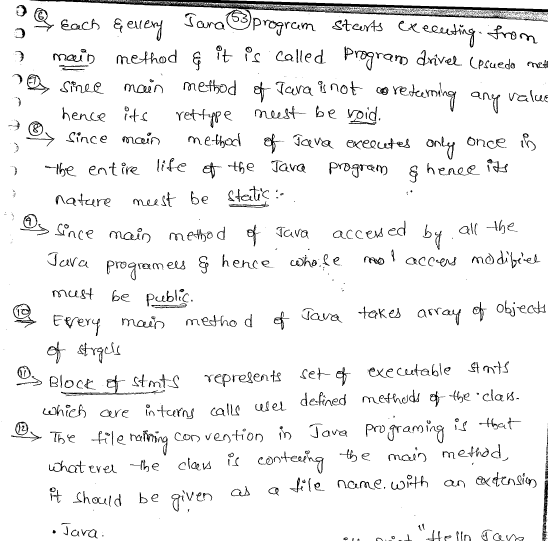 ⑥ Each & every Java 53 program starts executing from
main method & it is called Program driver (psuedo
⑦ Since main method of Java is not returning any value
hence its rettype must be void.
⑧ Since main method of Java executes only once in
the entire life of the Java program & hence its
nature must be static :-
⑨ Since main method of Java accessed by all the
Java programers & hence whose access modifier
must be public.
⑩ Every main method of Java takes array of objects
of
⑪ Block of stmts represents set of executable stmts
which are interns calls user defined methods of the class.
⑫ The file naming convention in Java programing is that
whatever the class is contening the main method,
it should be given as a file name. with an extension
. Java.
"Hello Java